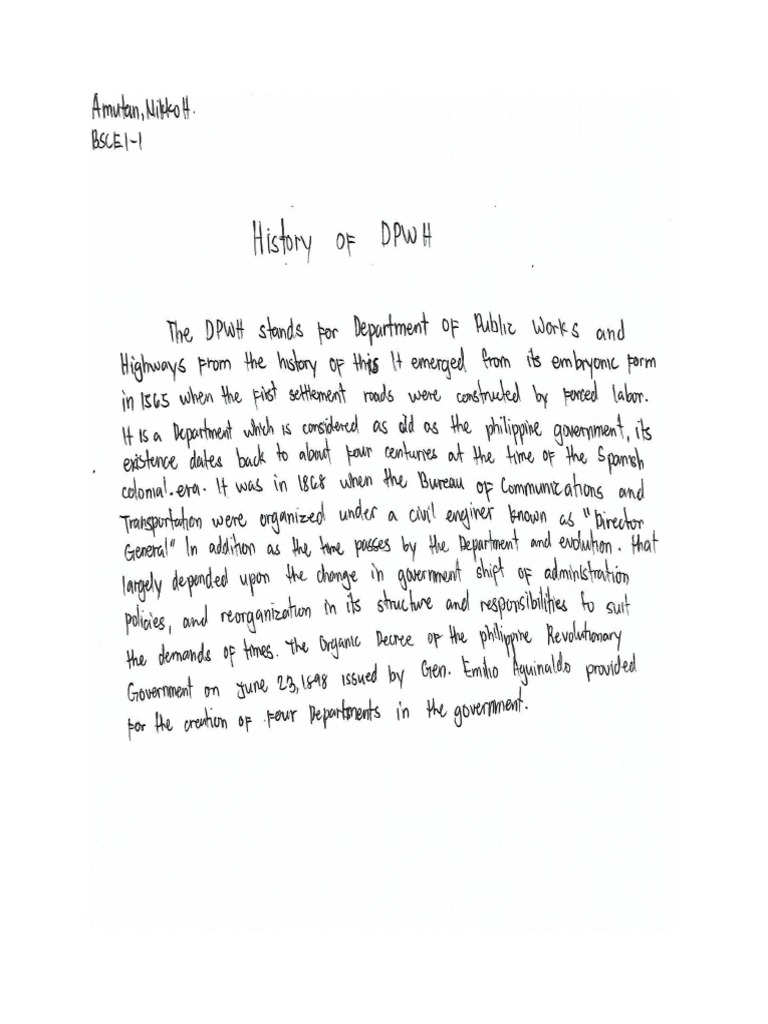 Amutan, Nikko H.
BSCE 1-1
History of DPWH
The DPWH stands for Department of Public Works and
Highways From the history of this It emerged from its embryonic form
in 1565 when the first settlement roads were constructed by forced labor.
It is a Department which is considered as old as the philippine government, its
existence dates back to about four centuries at the time of the Spanish
colonial era. It was in 1868 when the Bureau of Communications and
Transportation were organized under a civil enginer known as "Director
General" In addition as the time passes by the Department and evolution. that
largely depended upon the change in government shift of administration
policies, and reorganization in its structure and responsibilities to suit
the demands of times. The Organic Decree of the philippine Revolutionary
Government on June 23, 1898 issued by Gen. Emilio Aguinaldo provided
for the creation of four Departments in the government.